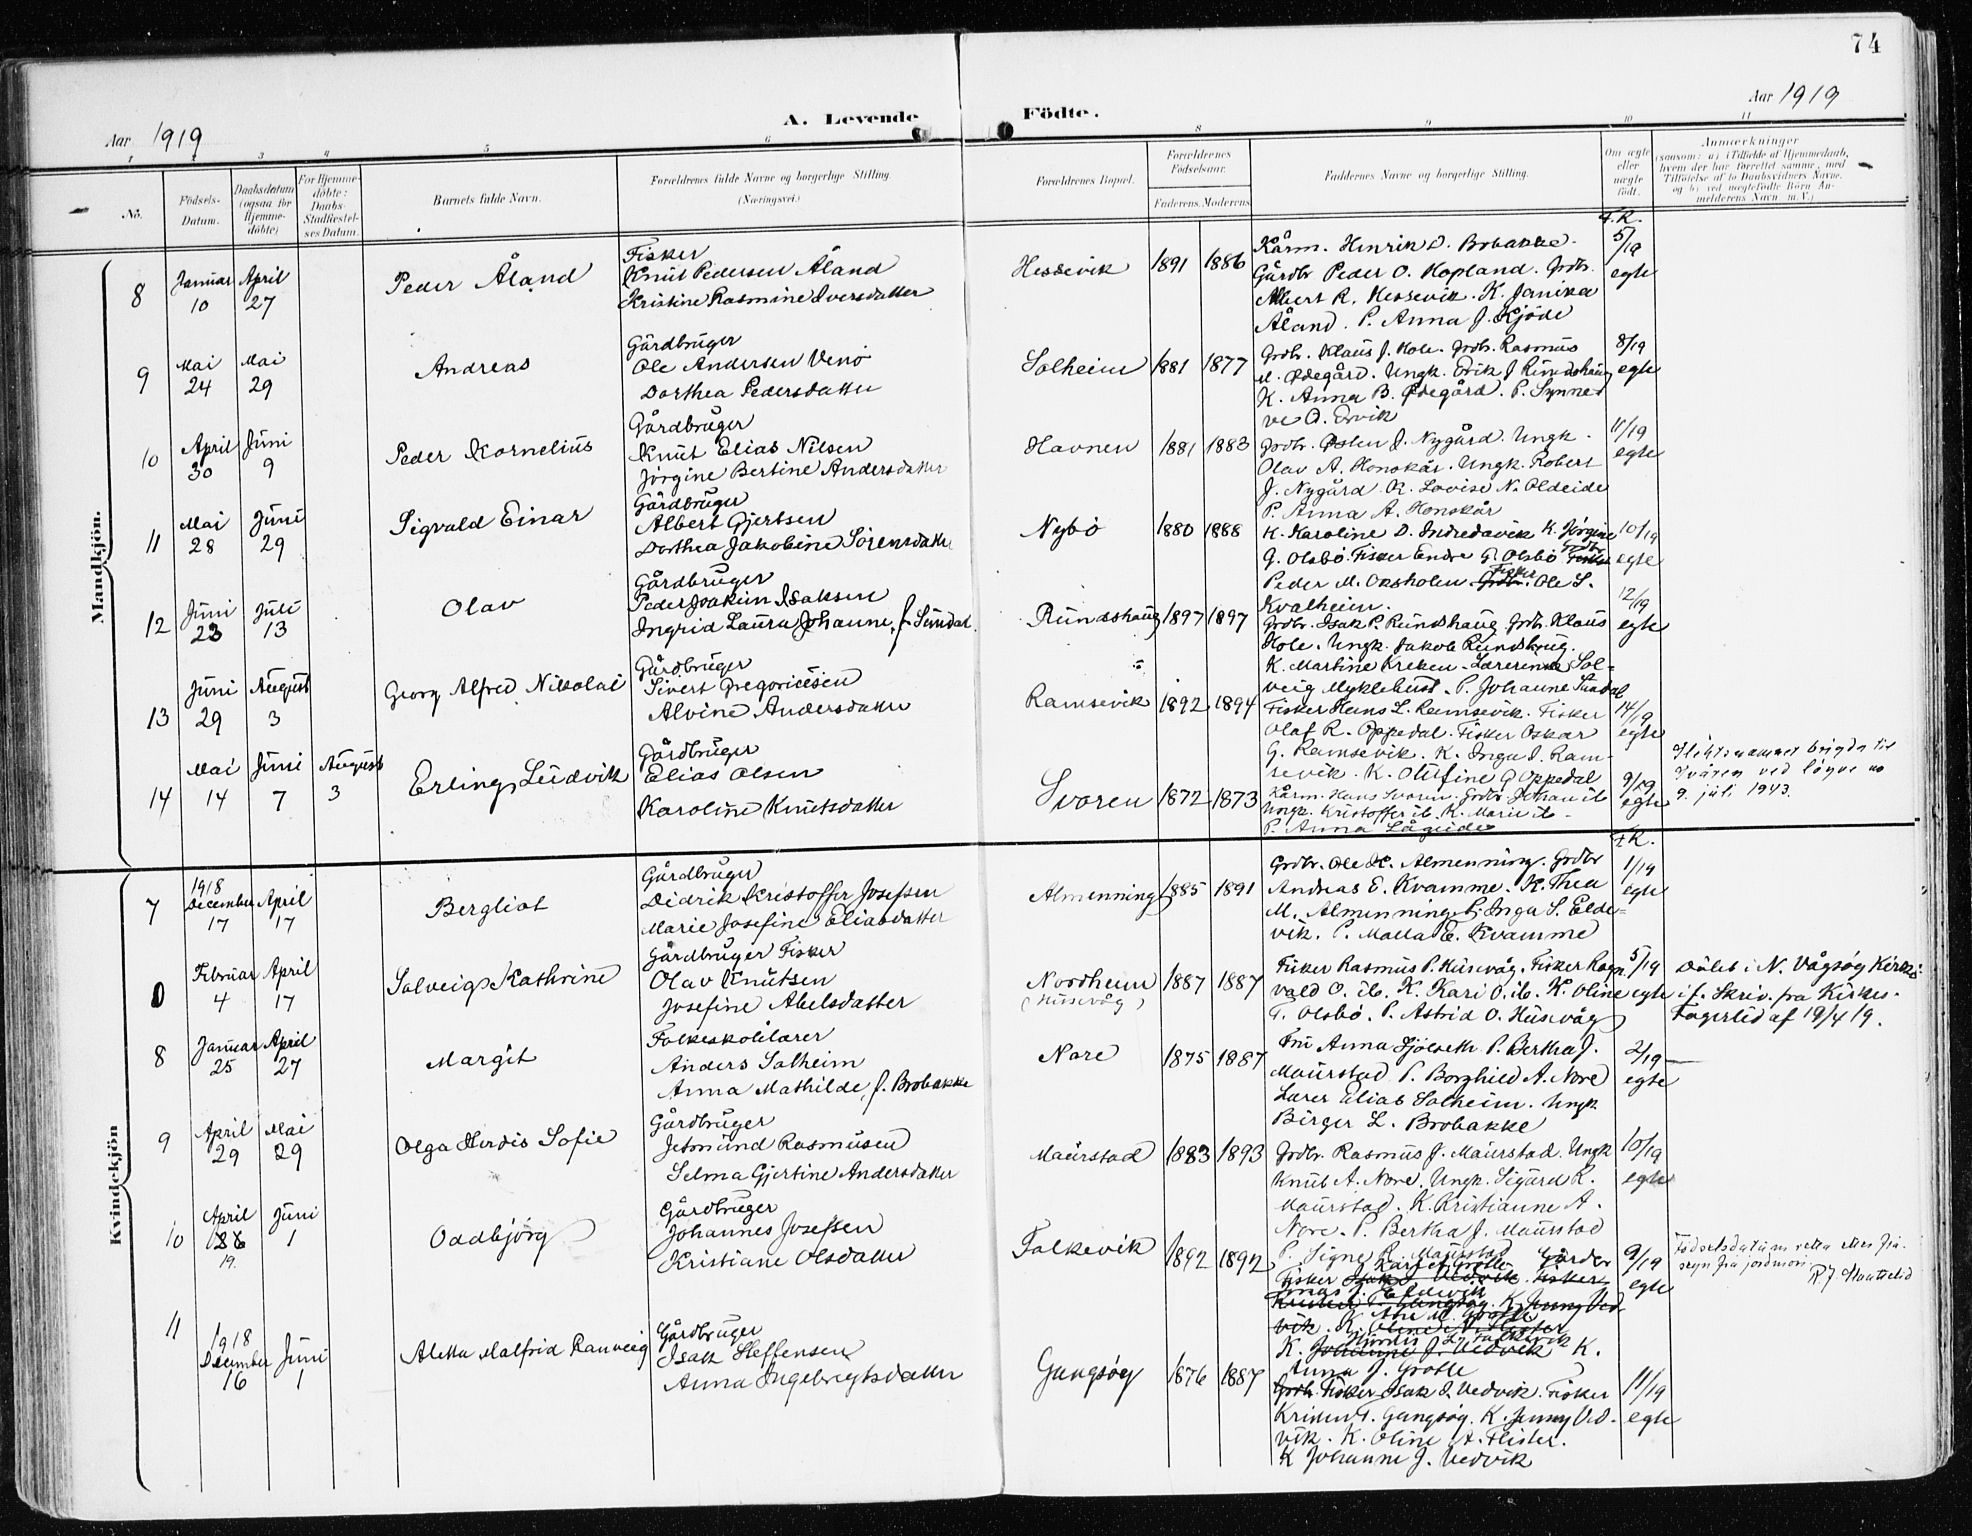 74
Aar 1919
A. Levende Födte.
Aar 1919
1 2 3 4 5 6 8 9 10 11
No.
Födsels-Datum.
Daabsdatum (ogsaa for Hjemme-döbte)
For Hjemme-döbte: Daabs-Stadfæstel-ses Datum.
Barnets fulde Navn.
Forældrenes fulde Navne og borgerlige Stilling.
(Næringsvei.)
Forældrenes Bopæl.
Forældrenes Födselsaar.
Faderens. Moderens.
Faddernes Navne og borgerlig Stilling.
Om ægte eller uægte födt.
Anmærkninger
(saasom: a) i Tilfælde af Hjemmedaab, hvem der har forrettet samme, med Tilföielse af to Daabsvidners Navne, og b) ved uegtefödte Börn Anmelderens Navn m. V.)
Mandkjön.
F.R.
8 Januar 10 April 27 Peder Åland
Fisker
Knut Pedersen Åland
Kristine Rasmine Iversdatter
Hessevik 1891 1886
Kårm. Henrik D. Brobakke.
Gårdbr Peder O. Hopland. Grdbr.
Albert R. Hessevik. K. Janika
Åland. P. Anna J. Kjöde
5/19 egte
9 Mai 24 Mai 29 Andreas
Gårdbruger
Ole Andersen Venö
Dorthea Pedersdatter
Solheim 1881 1877
Grdbr. Klaus J. Hole. Grdbr. Rasmus
M. Ödegård. Ungk. Erik J Rundshaug
K. Anna B. Ödegård. P. Synne-
ve A. Ervik
8/19 egte
10 April 30 Juni 9 Peder Kornelius
Gårdbruger
Knut Elias Nilsen
Jörgine Bertine Andersdatter
Havnen 1881 1883
Grdbr. Östen J. Nygård. Ungk.
Olav A. Honskår. Ungk. Robert
J. Nygård. K. Lovise N. Oldeide
P. Anna A. Honskår
11/19 egte
11 Mai 28 Juni 29 Sigvald Einar
Gårdbruger
Albert Gjertsen
Dorthea Jakobine Sörensdatter
Nybö 1880 1888
K. Karoline D. Indredavik K. Jörgine
G. Olsbö. Fisker Endre G. Olsbö Grdbr. Fisker
Peder M. Oksholen. Fisker Grdbr. Ole S.
Kvalheim.
10/19 egte
12 Juni 23 Juli 13 Olav
Gårdbruger
Peder Joakim Isaksen
Ingrid Laura Johanne, f. Sundal.
Rundshaug 1897 1897
Grdbr. Isak P. Rundshaug Grdbr. Klaus
Hole. Ungk. Jakob Rundshaug.
K. Martine Kreken. Lærerinne Sol-
veig Myklebust. P. Johanne Sundal
12/19 egte
13 Juni 29 August 3 Georg Alfred Nikolai
Gårdbruger
Sivert Gregoriusen
Alvine Andersdatter
Ramsevik 1892 1894
Fisker Hans L. Ramsevik. Fisker
Olaf R. Oppedal. Fisker Oskar
G. Ramsevik. K. Inga I. Ram-
sevik. K. Olufine G Oppedal
14/19 egte
14 Mai 14 Juni 7 August 3 Erling Ludvik
Gårdbruger
Elias Olsen
Karoline Knutsdatter
Svoren 1872 1873
Kårm. Hans Svoren. Grdbr. Johan ib
Ungk. Kristoffer ib. K. Marie ib.
P. Anna Lågeide
9/19 egte
Slektsnamnet brigda til
Svåren ved löyve no
9. juli 1943.
Kvindekjön
F.R.
7 1918 December 17 April 17 Bergliot
Gårdbruger
Didrik Kristoffer Josefsen
Marie Josefine Eliasdatter
Almenning 1885 1891
Grdbr. Ole H. Almenning. Grdbr
Andreas E. Kvamme. K. Thea
M. Almenning. P. Inga S. Elde-
vik. P. Malla E. Kvamme
1/19 egte
0 Februar 4 April 17 Solveig Kathrine
Gårdbruger Fisker
Olav Knutsen
Josefine Abelsdatter
Nordheim (Husevåg) 1887 1887
Fisker Rasmus P. Husevåg. Fisker Ragn-
vald O. ib. K. Kari O. ib. K. Oline
T. Olsbö. P. Astrid O. Husevåg
5/19 egte
Döbt i N. Vågsöy Kirke
if. Skriv. fra Kirkes.
Fagerlid af 19/4 19.
8 Januar 25 April 27 Margit
Folkeskolelærer
Anders Solheim
Anna Mathilde, f. Brobakke
Nore 1875 1887
Fru Anna Sjölseth P. Bertha J.
Maurstad P. Borghild A. Nore
Lærer Elias Solheim. Ungk
Birger L. Brobakke
2/19 egte
9 April 29 Mai 29 Olga Herdis Sofie
Gårdbruger
Jetmund Rasmusen
Selma Gjertine Andersdatter
Maurstad 1883 1893
Grdbr. Rasmus J. Maurstad. Ungk
Knut A. Nore. Ungk. Sigurd R.
Maurstad. K. Kristianne A.
Nore. P. Bertha J. Maurstad
P. Signe R. Maurstad
10/19 egte
10 April 19. Juni 1 Oddbjörg
Gårdbruger
Johannes Josefsen
Kristiane Olsdatter
Falkevik 1892 1892
Karl J. Grotle Gårdbr
Fisker Isak I. Vedvik. Fisker
Jonas J. Eldevik
Kristen T. Gangsöy. K. Jenny Ved-
vik. K. Oline A. Flister
K. Johanne J. Vedvik K.
Anna J. Grotle
9/19 egte
Födselsdatum retta etter frå-
segn frå jordmori
11 1918 December 16 Juni 1 Aletta Malfrid Ranveig
Gårdbruger
Isak Steffensen
Anna Ingebrigtsdatter
Gangsöy 1876 1887
Grdb. Fisker Isak I. Vedvik. Fisker
Kristen T. Gangsöy. K. Jenny Ved-
vik. K. Oline A. Flister.
K Johanne J. Vedvik
11/19 egte